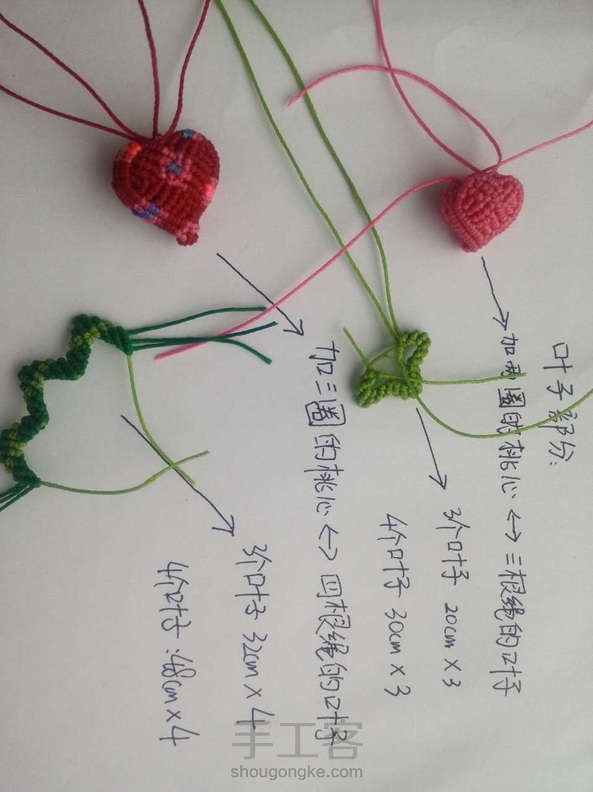 叶子部分:
加两圈的桃心 <-> 三根绳的叶子
3个叶子 20cm×3
4个叶子 30cm×3
加三圈的桃心 <-> 四根绳的叶子
3个叶子 32cm×4
4个叶子:48cm×4
手工客
shougongke.com